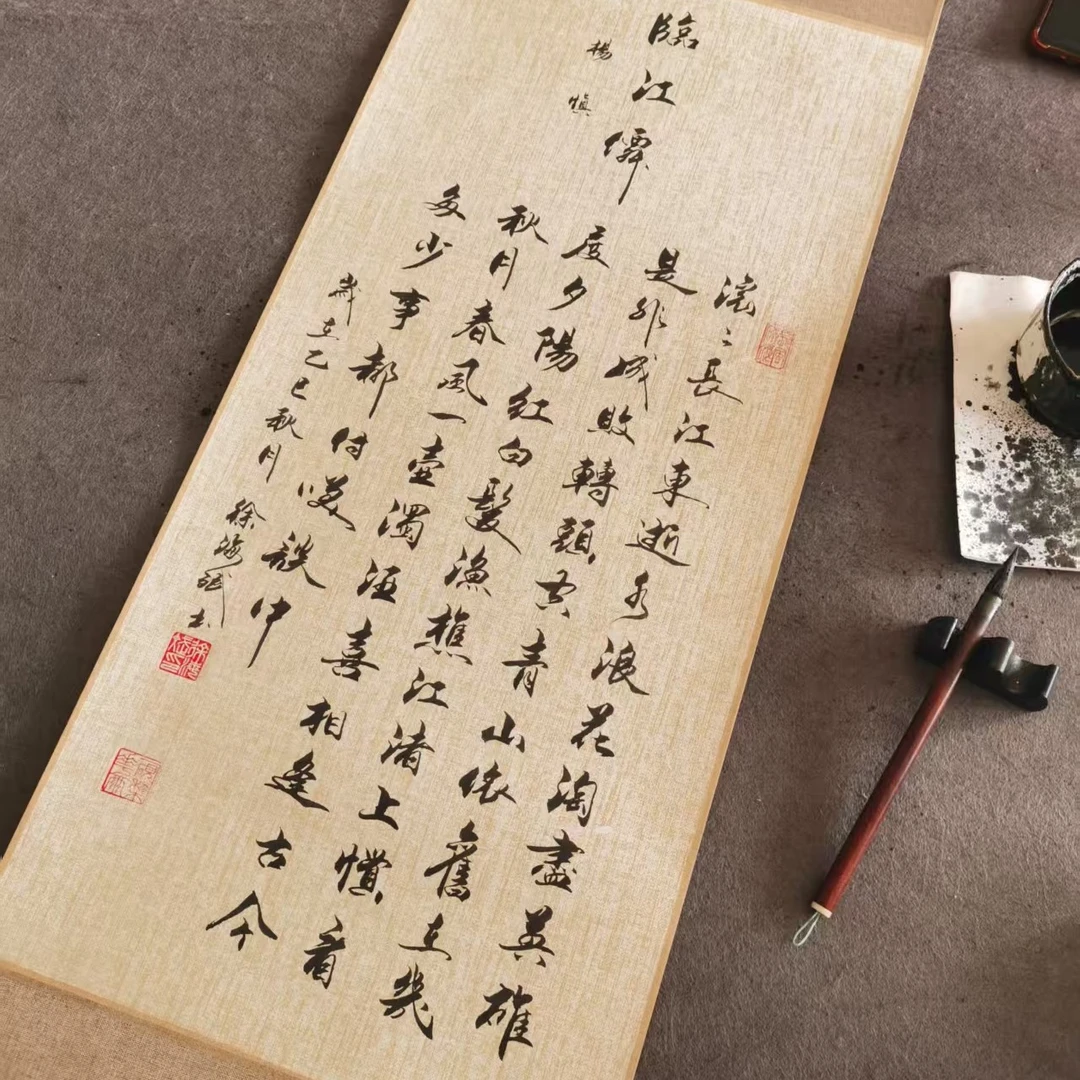 臨江僊
楊慎
滾〻長江東逝水浪花淘盡英雄
是非成敗轉頭空青山依舊在幾
度夕陽紅白髮漁樵江渚上慣看
秋月春風一壺濁酒喜相逢古今
多少事都付咲談中
歲在乙巳秋月徐海斌書